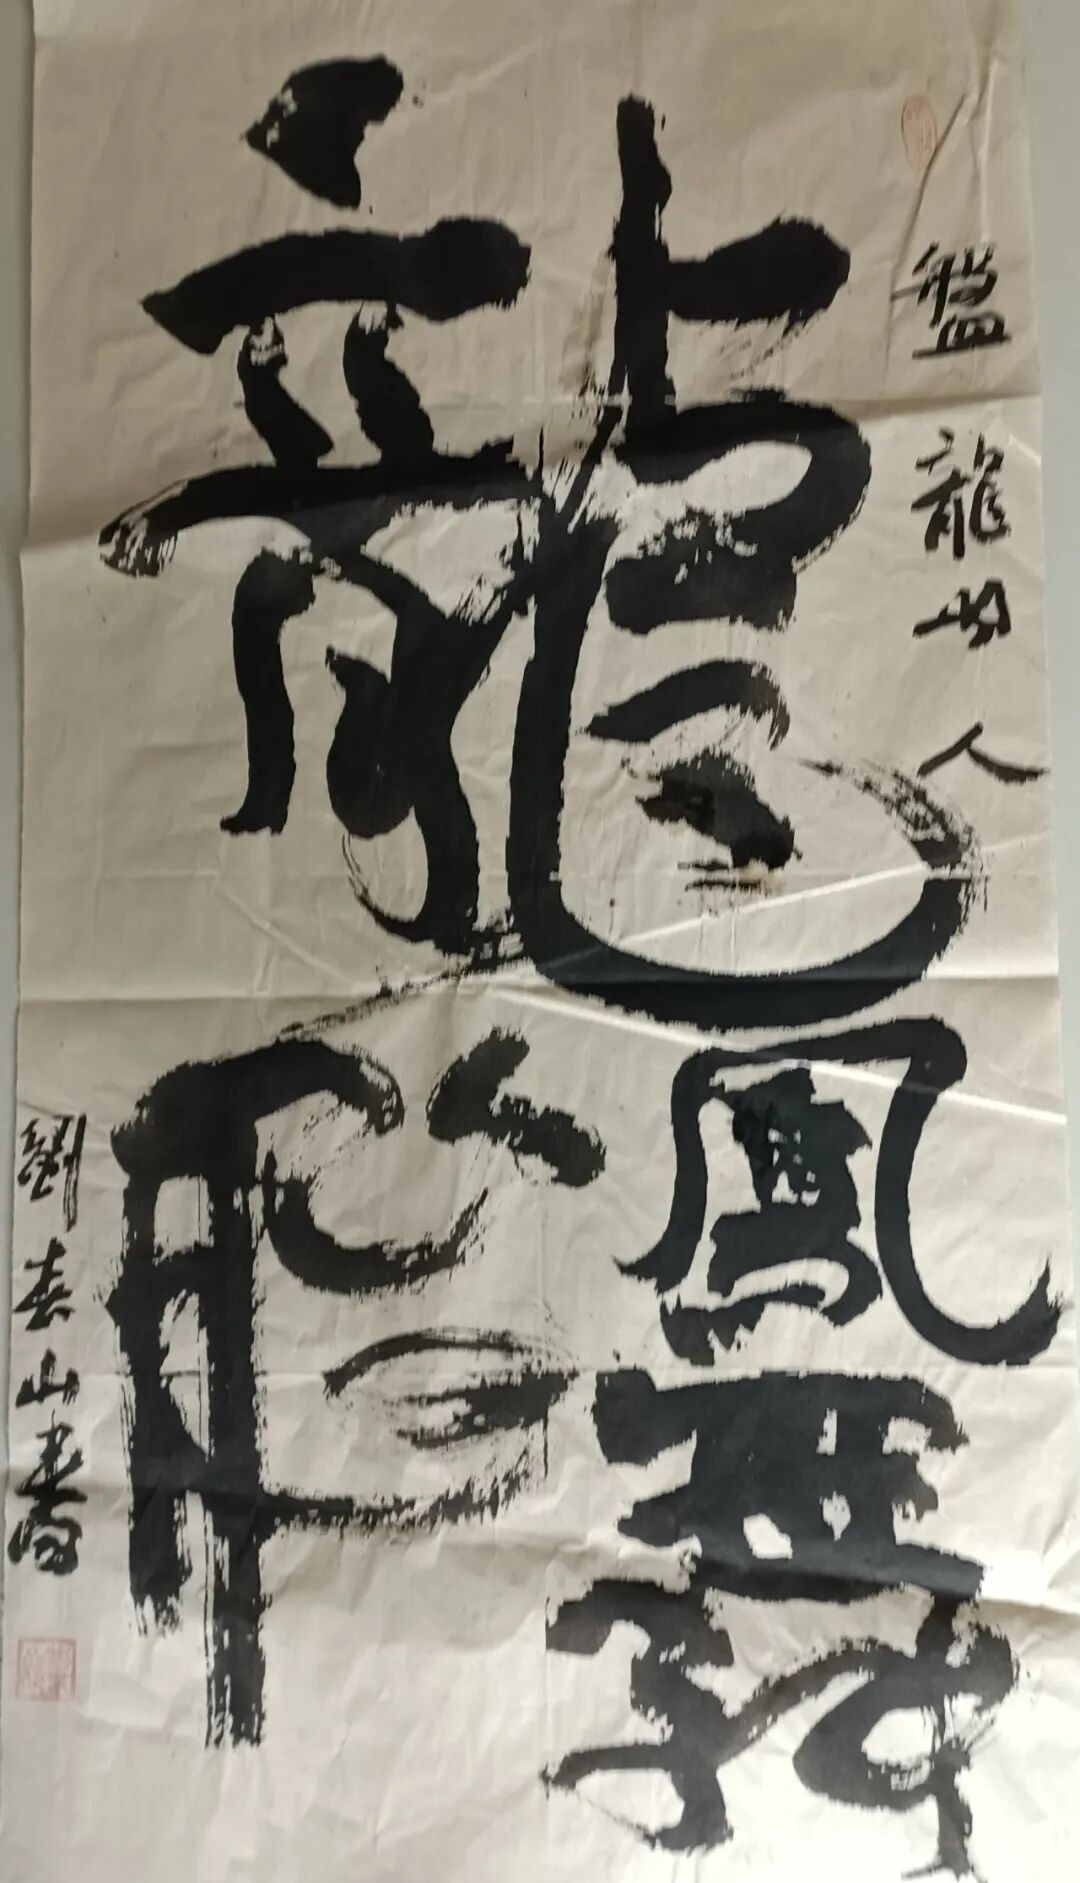 盤龍人
龍飛鳳舞
劉春山書